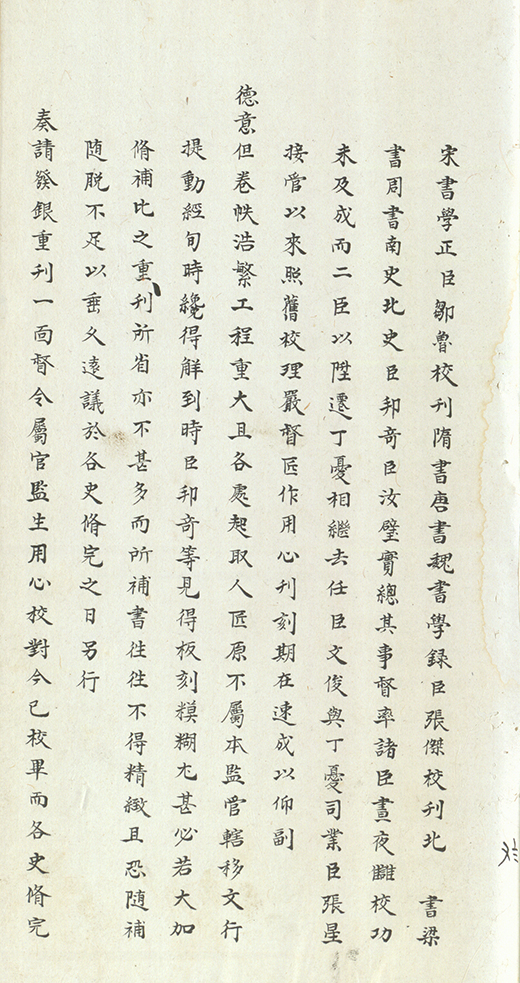 宋書學正臣鄒魯校刊隋書唐書魏書學録臣張傑校刊北　書梁
書周書南史北史臣邦竒臣汝璧實總其事督率諸臣晝夜讎校功
未及成而二臣以陞遷丁憂相繼去任臣文俊與丁憂司業臣張星
接管以來照舊校理嚴督匠作用心刊刻期在速成以仰副
德意但卷帙浩繁工程重大且各處起取人匠原不屬本監管轄移文行
提動經旬時纔得解到時臣邦竒等見得板刻糢糊尤甚必若大加
脩補比之重刋所省亦不甚多而所補書徃徃不得精緻且恐随補
随脱不足以垂久遠議於各史脩完之日另行
奏請發銀重刊一面督令屬官監生用心校對今已校畢而各史脩完